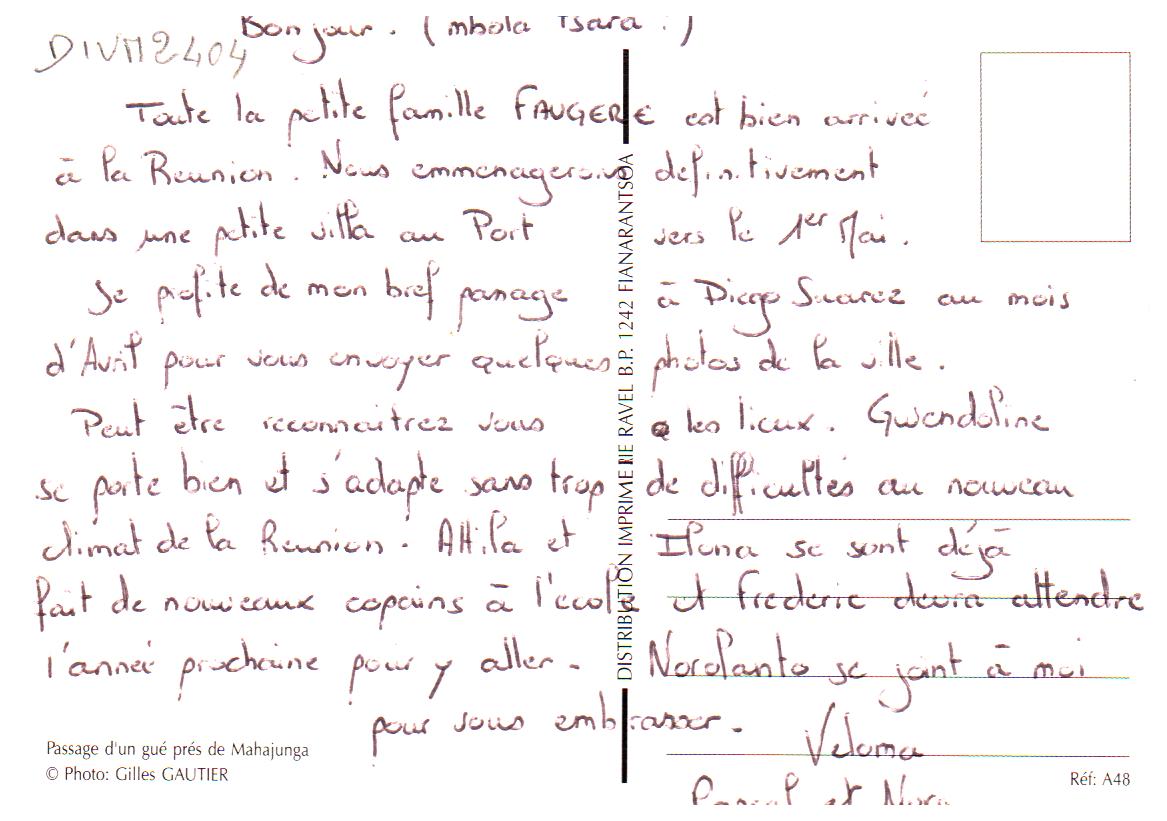 Bonjour. (mbola Tsara !)
DIVM2404
Toute la petite famille FAUGERE est bien arriveé
à la Reunion. Nous emmenagerons definitivement
dans une petite villa au Port vers le 1er Mai.
Je profite de mon bref passage à Diego Suarez au mois
d'Avril pour vous envoyer quelques photos de la ville.
Peut être reconnaitrez vous les lieux. Gwendoline
se porte bien et s'adapte sans trop de difficultés au nouveau
climat de la Reunion. Attila et Ilona se sont déjà
fait de nouveaux copains à l'école et Frederic devra attendre
l'anneé prochaine pour y aller. Norolanto se joint à moi
pour vous embrasser.
Veloma
Pascal et Noro
DISTRIBUTION IMPRIMERIE RAVEL B.P. 1242 FIANARANTSOA
Passage d'un gué prés de Mahajunga
© Photo: Gilles GAUTIER
Réf: A48